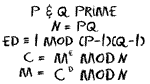 P & Q PRIME
N = PQ
ED ≡ 1 MOD (P-1)(Q-1)
C = Mᴱ MOD N
M = Cᴰ MOD N